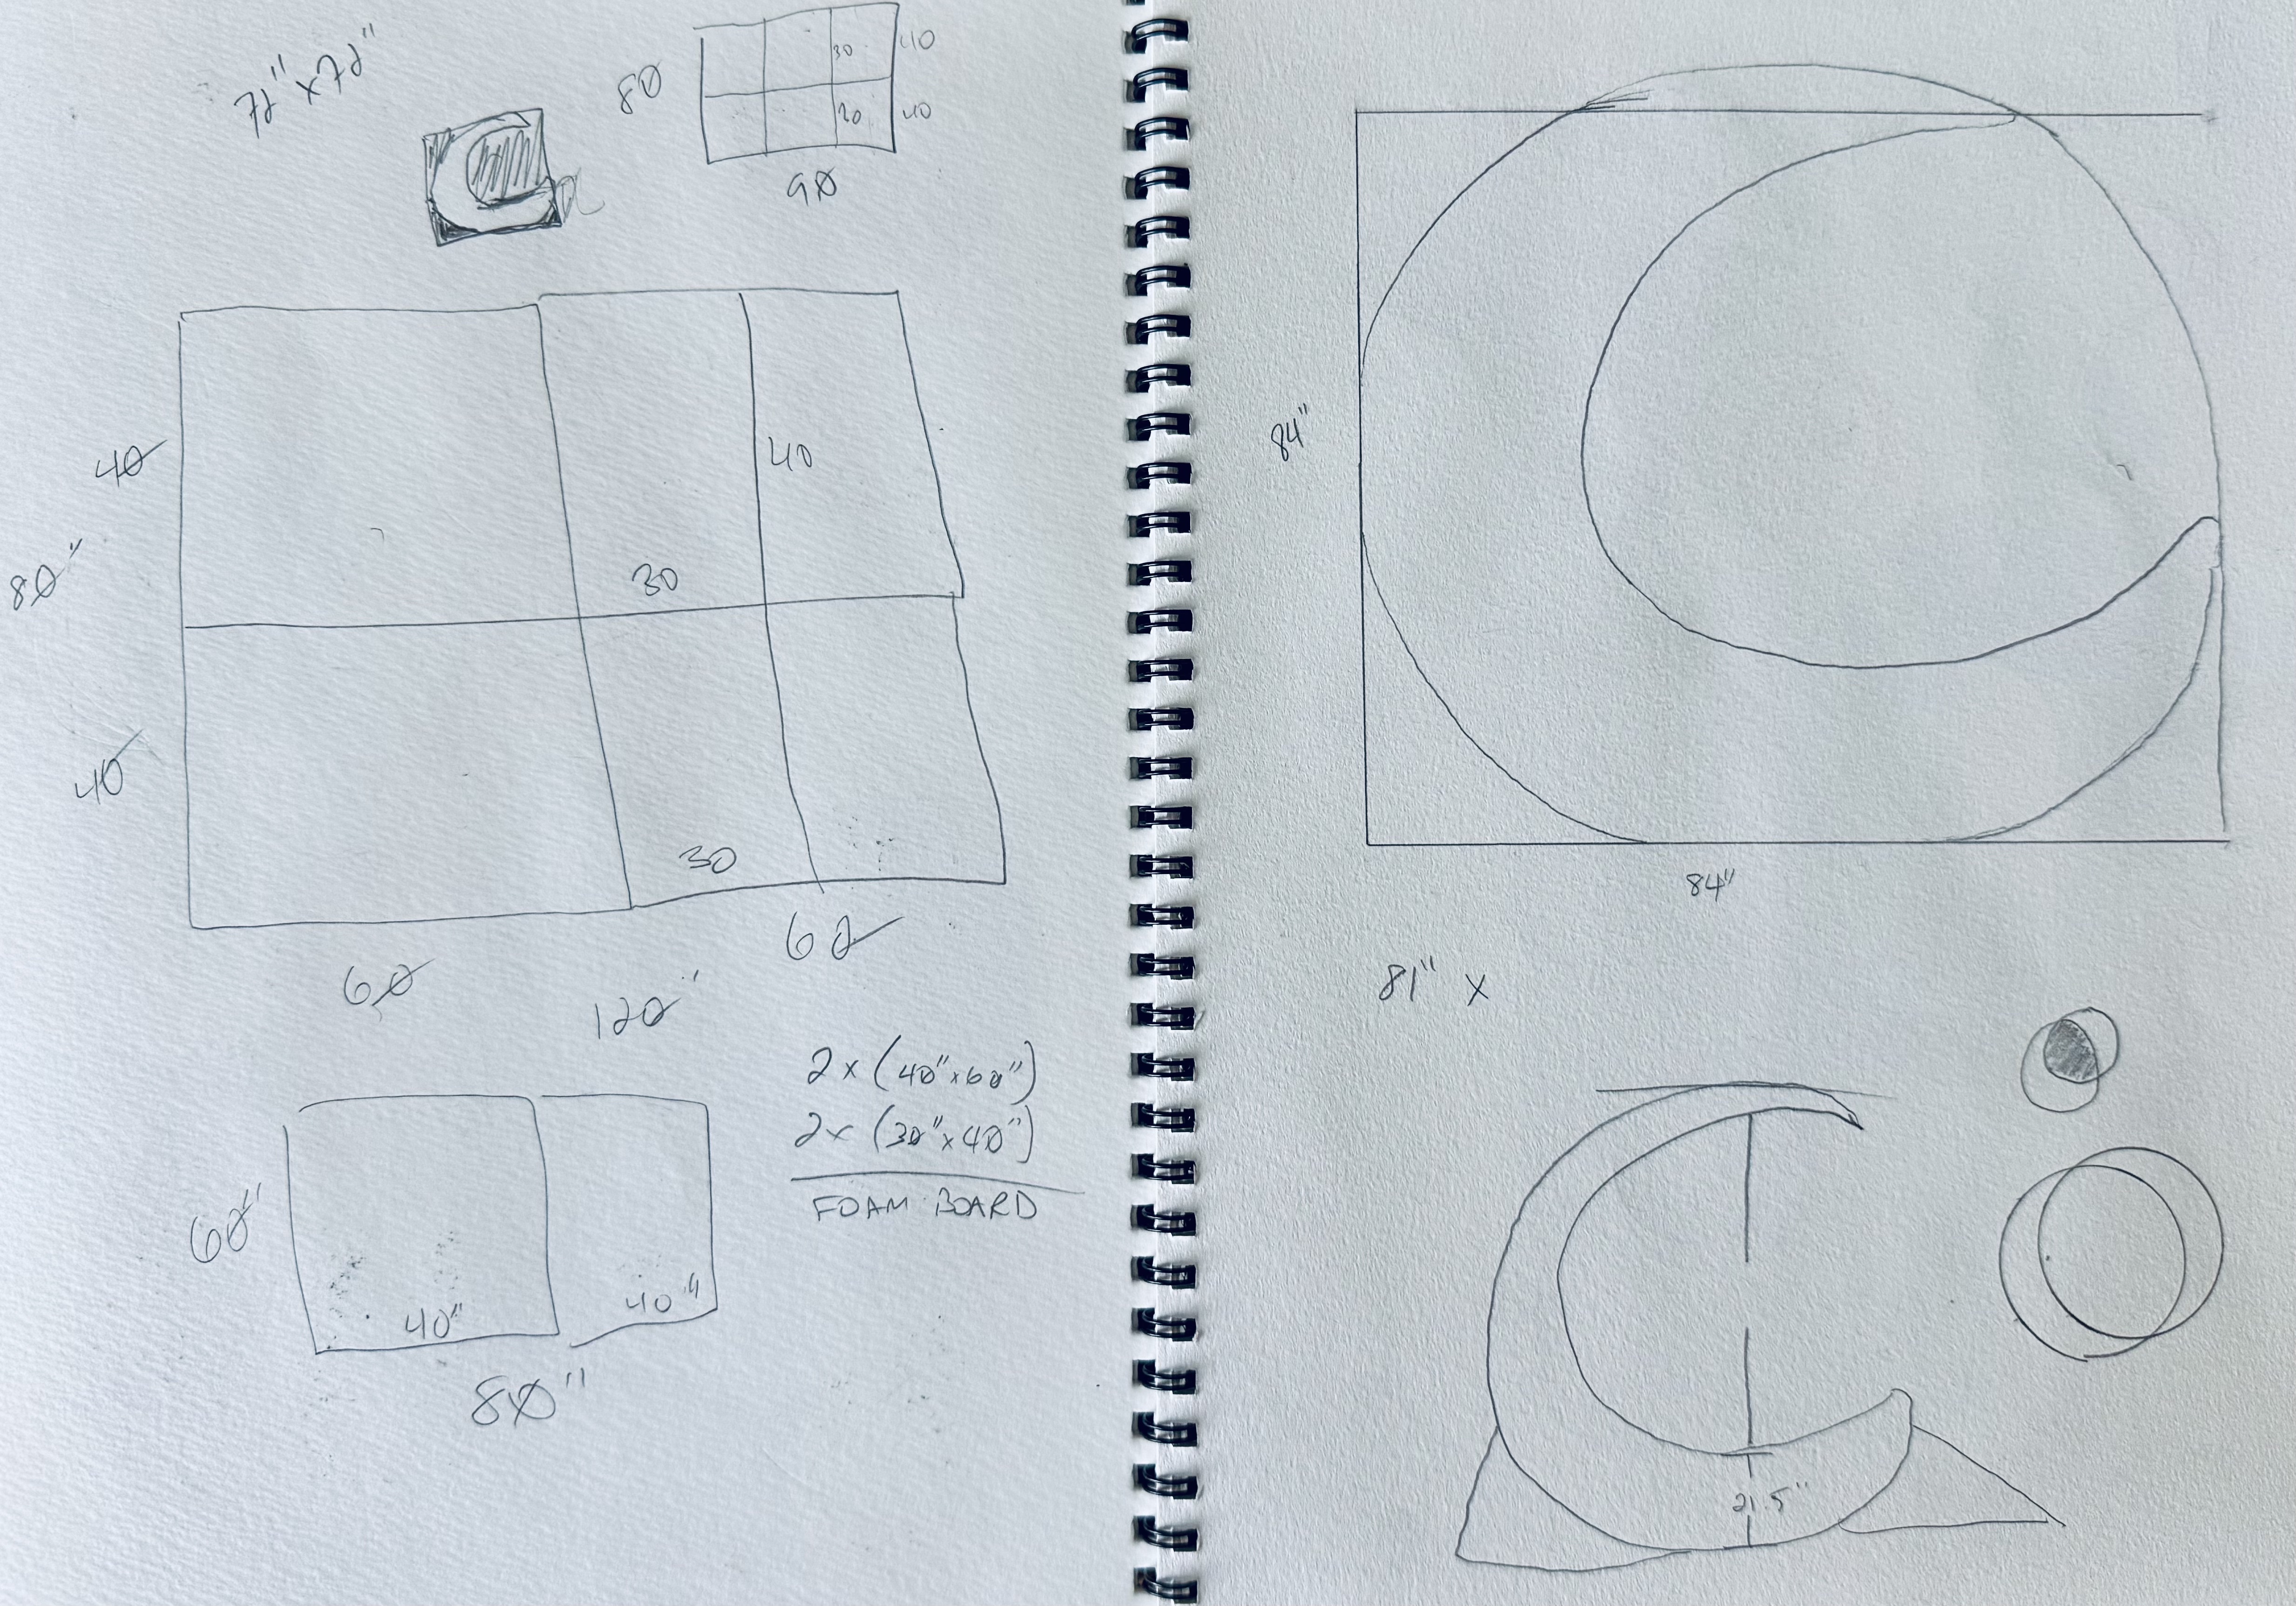 72" x 72"
80
30
40
20
40
90
40
40
30
80"
40
30
60
60
120"
2 x (40" x 60")
2 x (30" x 40")
FOAM BOARD
60"
40"
40"
80"
84"
84"
81" x
21.5"